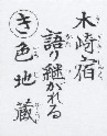 木崎宿
語り継がれる
き色地蔵